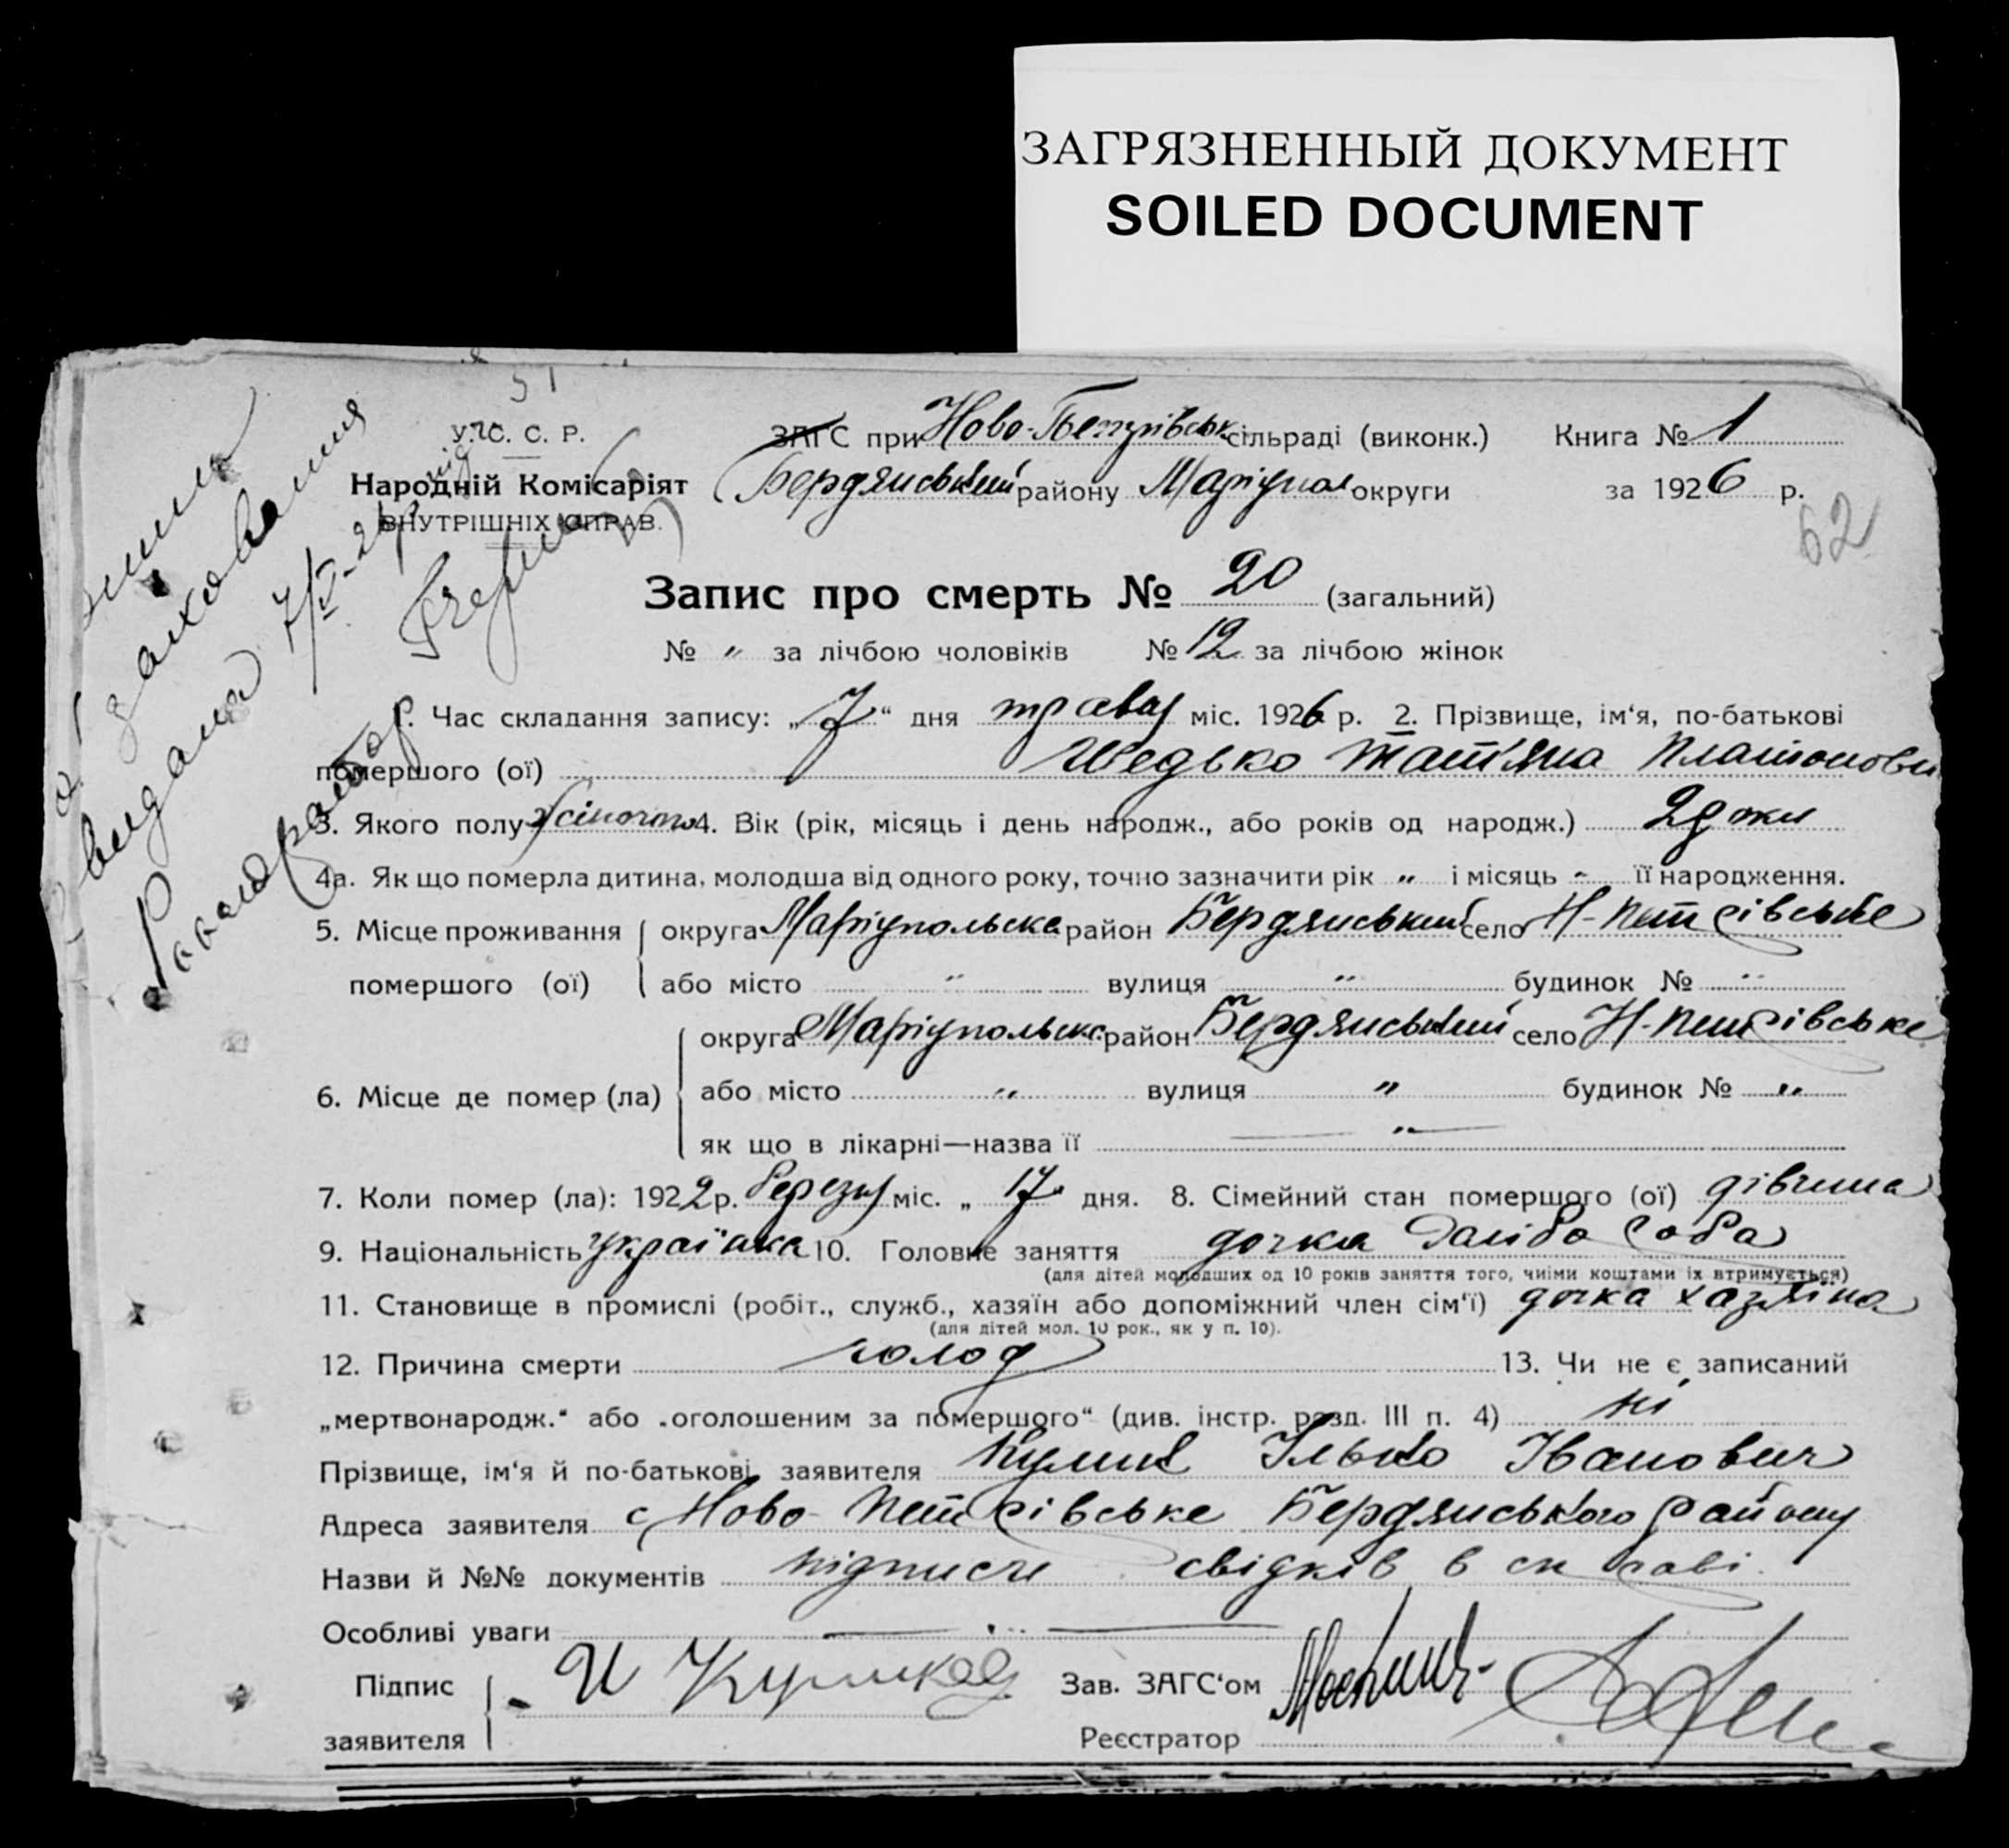 ЗАГРЯЗНЕННЫЙ ДОКУМЕНТ
SOILED DOCUMENT
У. С. С. Р.
Народній Комісаріят
ВНУТРІШНІХ СПРАВ.
ЗАГС при Ново-Петрівськ. сільраді (виконк.) Книга № 1
Бердянський району Маріупол округи за 1926 р.
62
Запис про смерть № 20 (загальний)
№ " за лічбою чоловіків № 12 за лічбою жінок
1. Час складання запису: „7“ дня травня міс. 1926 р. 2. Прізвище, ім‘я, по-батькові
помершого (ої) Шедько Татіяна Платонови
3. Якого полу жіночого 4. Вік (рік, місяць і день народж., або років од народж.) 2
4а. Як що померла дитина, молодша від одного року, точно зазначити рік " і місяць " її народження.
5. Місце проживання округа Маріупольска район Бердянський село Н-Петрівське
помершого (ої) або місто " вулиця " будинок № "
округа Маріупольска район Бердянський село Н-Петрівське
6. Місце де помер (ла) або місто " вулиця " будинок № "
як що в лікарні—назва її "
7. Коли помер (ла): 1922 р. березня міс. „17“ дня. 8. Сімейний стан помершого (ої) дівчина
9. Національність українка 10. Головне заняття дочка
(для дітей молодших од 10 років заняття того, чиїми коштами їх втримується)
11. Становище в промислі (робіт., служб., хазяїн або допоміжний член сім‘ї) дочка хазяїна
(для дітей мол. 10 рок., як у п. 10).
12. Причина смерти голод 13. Чи не є записаний
„мертвонародж.“ або „оголошеним за помершого“ (див. інстр. розд. III п. 4) ні
Прізвище, ім‘я й по-батькові заявителя Кулик Ілько Іванович
Адреса заявителя с Ново-Петрівське Бердянського району
Назви й №№ документів підписи свідків в
Особливі уваги
Підпис И Куликов Зав. ЗАГС‘ом
заявителя Реєстратор